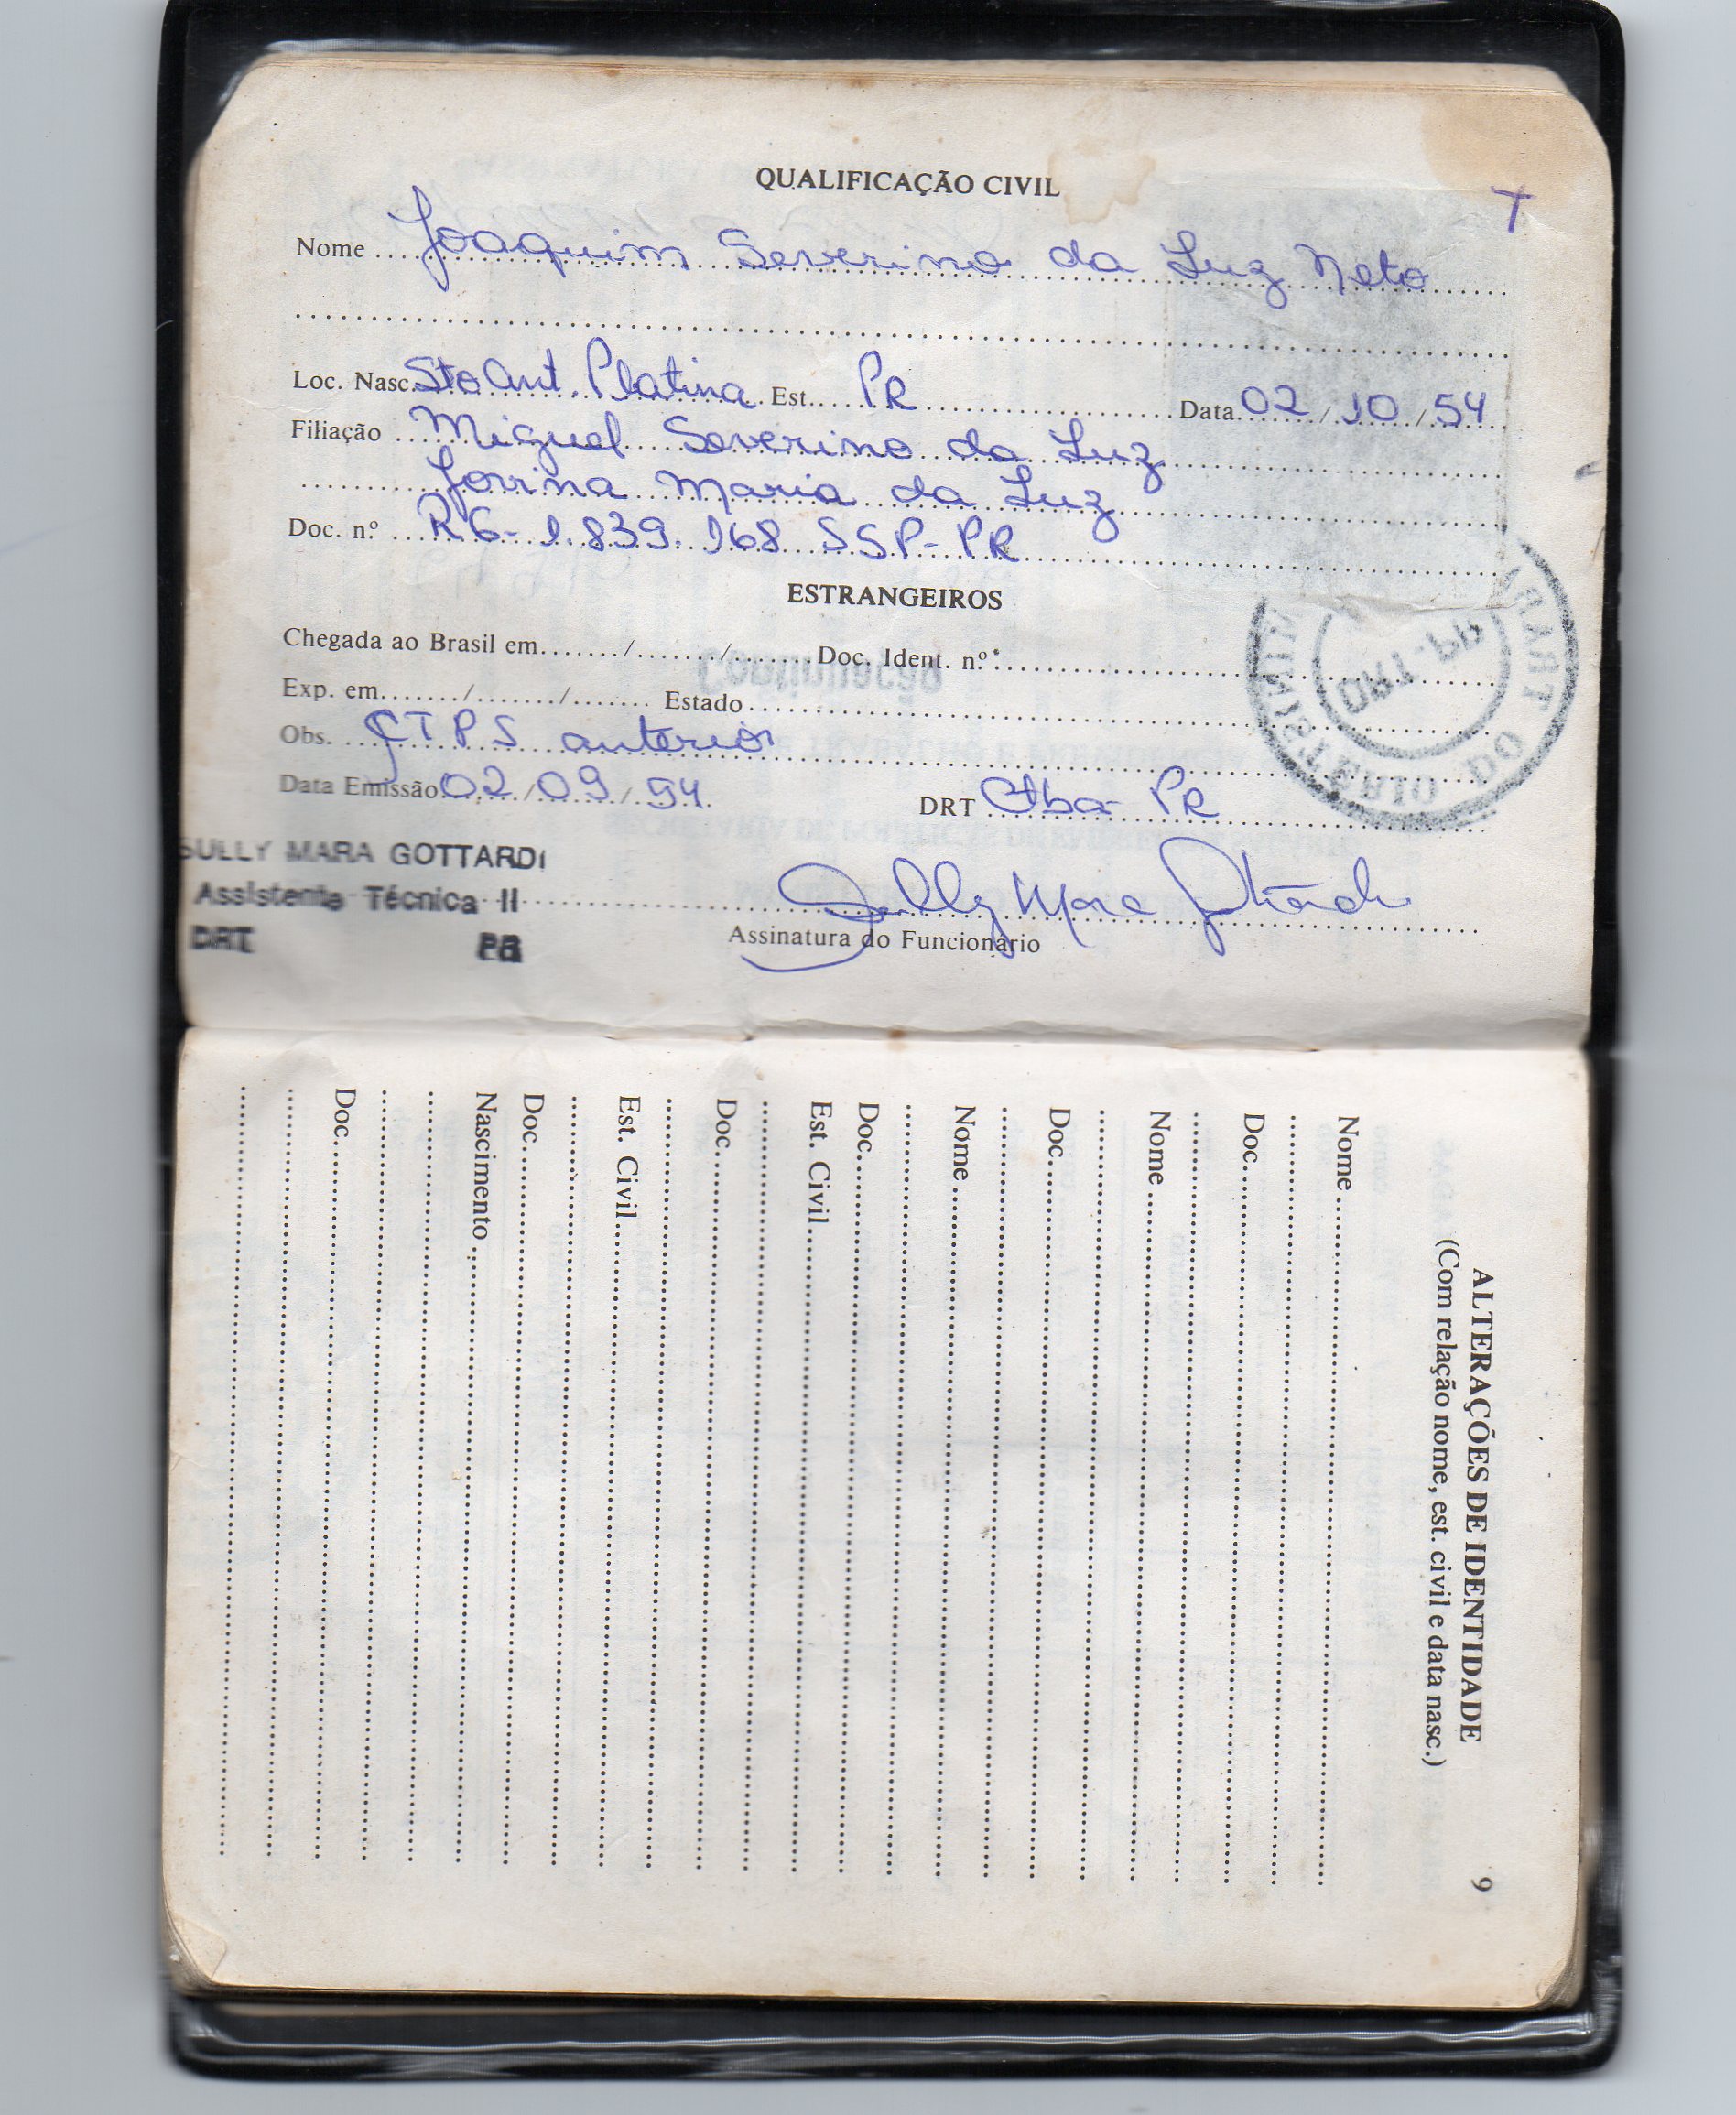 QUALIFICAÇÃO CIVIL
T
Nome Joaquim Severino da Luz Neto
Loc. Nasc. Sto Ant. Platina Est. PR Data 02/10/54
Filiação Miguel Severino da Luz
Jovina Maria da Luz
Doc. n.º RG-1.839.168 SSP-PR
ESTRANGEIROS
Chegada ao Brasil em ....../....../...... Doc. Ident. n.º
Exp. em ....../....../...... Estado
Obs. CTPS anterior
Data Emissão 02/09/94. DRT Ctba PR
MINISTERIO DO TRAB
DRT-PR
Continuação
SULLY MARA GOTTARDI
Assistente Técnica II
DRT PR
Sully Mara Gottardi
Assinatura do Funcionário
9
ALTERAÇÕES DE IDENTIDADE
(Com relação nome, est. civil e data nasc.)
Nome
Doc.
Nome
Doc.
Nome
Doc.
Est. Civil
Doc.
Est. Civil
Doc.
Nascimento
Doc.